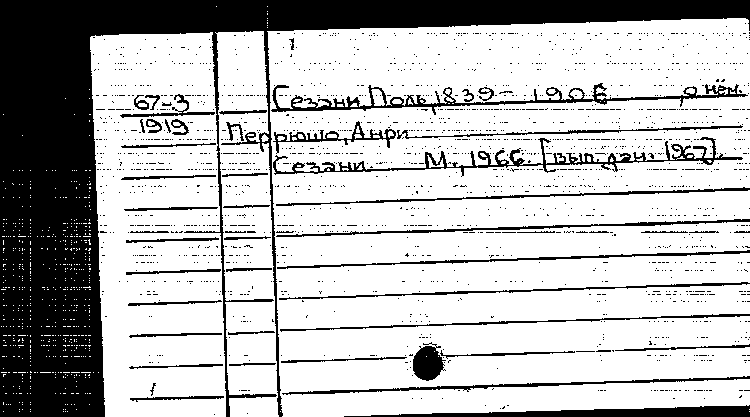 67-3 Сезанн, Поль, 1839- 1906 , о нём.
1919 Перрюшо, Анри
Сезанн. М., 1966 [вып. дан. 1967].